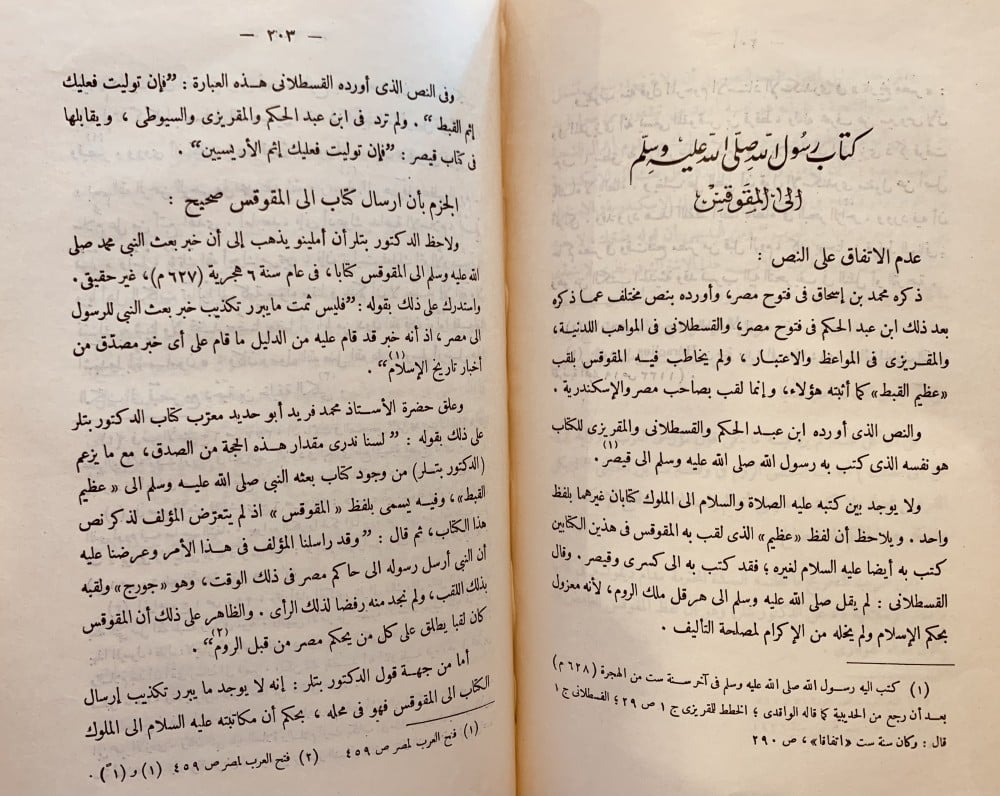 كتاب رسول الله صلى الله عليه وسلم
الى المقوقس
عدم الاتفاق على النص :
ذكره محمد بن إسحاق فى فتوح مصر، وأورده بنص مختلف عما ذكره
بعد ذلك ابن عبد الحكم فى فتوح مصر، والقسطلانى فى المواهب اللدنية،
والمقريزى فى المواعظ والاعتبار ، ولم يخاطب فيه المقوقس بلقب
«عظيم القبط» كما أثبته هؤلاء، وإنما لقب بصاحب مصر والإسكندرية .
والنص الذى أورده ابن عبد الحكم والقسطلانى والمقريزى للكتاب
هو نفسه الذى كتب به رسول الله صلى الله عليه وسلم الى قيصر(١) .
ولا يوجد بين كتبه عليه الصلاة والسلام الى الملوك كتابان غيرهما بلفظ
واحد . ويلاحظ أن لفظ «عظيم» الذى لقب به المقوقس فى هذين الكتابين
كتب به أيضا عليه السلام لغيره ؛ فقد كتب به الى كسرى وقيصر . وقال
القسطلانى : لم يقل صلى الله عليه وسلم الى هرقل ملك الروم، لأنه معزول
بحكم الإسلام ولم يخله من الإكرام لمصلحة التأليف .
(١) كتب اليه رسول الله صلى الله عليه وسلم فى آخر سنة ست من الهجرة (٦٢٨ م)
بعد أن رجع من الحديبية كما قاله الواقدى ؛ الخطط للقريزى ج ١ ص ٢٩ ؛ القسطلانى ج ١
قال : وكان سنة ست «اتفاقا»، ص ٢٩٠
— ٢٠٣ —
وفى النص الذى أورده القسطلانى هذه العبارة : ”فإن توليت فعليك
إثم القبط“ . ولم ترد فى ابن عبد الحكم والمقريزى والسيوطى ، ويقابلها
فى كتاب قيصر : ”فإن توليت فعليك إثم الأريسيين“ .
الجزم بأن ارسال كتاب الى المقوقس صحيح :
ولاحظ الدكتور بتلر أن أملينو يذهب إلى أن خبر بعث النبى محمد صلى
الله عليه وسلم الى المقوقس كتابا، فى عام سنة ٦ هجرية (٦٢٧ م)، غير حقيقى .
واستدرك على ذلك بقوله : ”فليس ثمت مايبرر تكذيب خبر بعث النبى للرسول
الى مصر، اذ أنه خبر قد قام عليه من الدليل ما قام على أى خبر مصدّق من
أخبار تاريخ الإسلام(١)“ .
وعلق حضرة الأستاذ محمد فريد أبو حديد معرّب كتاب الدكتور بتلر
على ذلك بقوله : ”لسنا ندرى مقدار هذه الحجة من الصدق، مع ما يزعم
(الدكتور بتلر) من وجود كتاب بعثه النبى صلى الله عليه وسلم الى «عظيم
القبط»، وفيه يسمى بلفظ «المقوقس» اذ لم يتعرّض المؤلف لذكر نص
هذا الكتاب، ثم قال : ”وقد راسلنا المؤلف فى هذا الأمر وعرضنا عليه
أن النبى أرسل رسوله الى حاكم مصر فى ذلك الوقت، وهو «جورج» ولقبه
بذلك اللقب، ولم نجد منه رفضا لذلك الرأى . والظاهر على ذلك أن المقوقس
كان لقبا يطلق على كل من يحكم مصر من قبل الروم(٢)“ .
أما من جهة قول الدكتور بتلر : إنه لا يوجد ما يبرر تكذيب إرسال
الكتاب الى المقوقس فهو فى محله ، بحكم أن مكاتبته عليه السلام الى الملوك
(١) فتح العرب لمصر ص ٤٥٩ (٢) فتح العرب لمصر ص ٤٥٩ (١) و (١ً) .